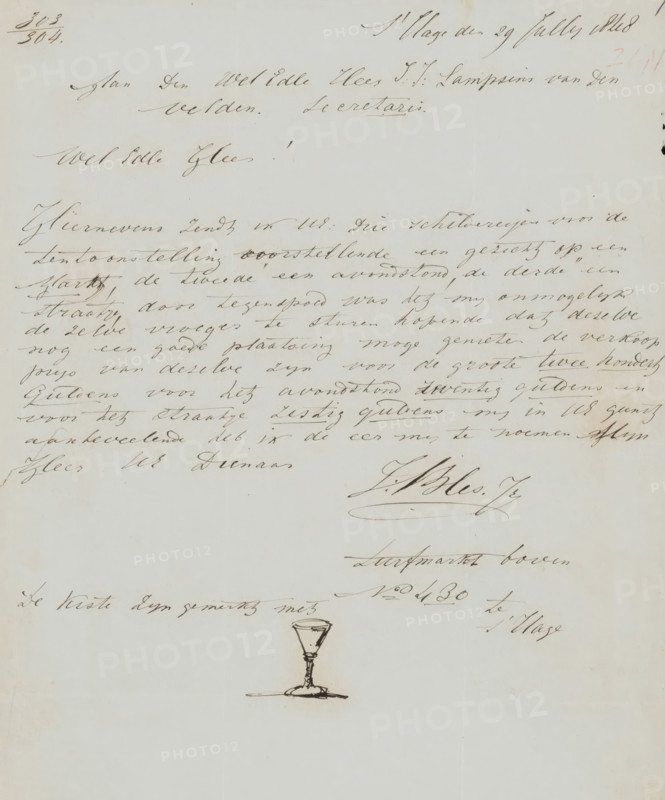 303
304.
s'Hage den 29 July 1848
Aan Den Wel Edle Heer J. J: Lampsins van Den
velden. Secretaris.
Wel Edle Heer!
Hiernevens zendt ik UE: Drie schilderijen voor de
tentoonstelling voorstellende een gezicht op een
Markt, de tweede een avondstond, de derde een
straatje, door tegenspoed was het mij onmogelijk
de zelve vroeger te sturen hopende dat deselve
nog een goede plaatsing moge genieten de verkoop
prijs van deselve zijn voor de groote twee hondert
Guldens voor het avondstond twintig guldens en
voor het straatje zestig guldens mij in UE gunst
aanbeveelende heb ik de eer mij te noemen Mijn
Heer UE Dienaar
J. Bles. Jz
Turfmarkt boven
No 430 te
s'Hage
De kiste zijn gemerkt met
PHOTO12